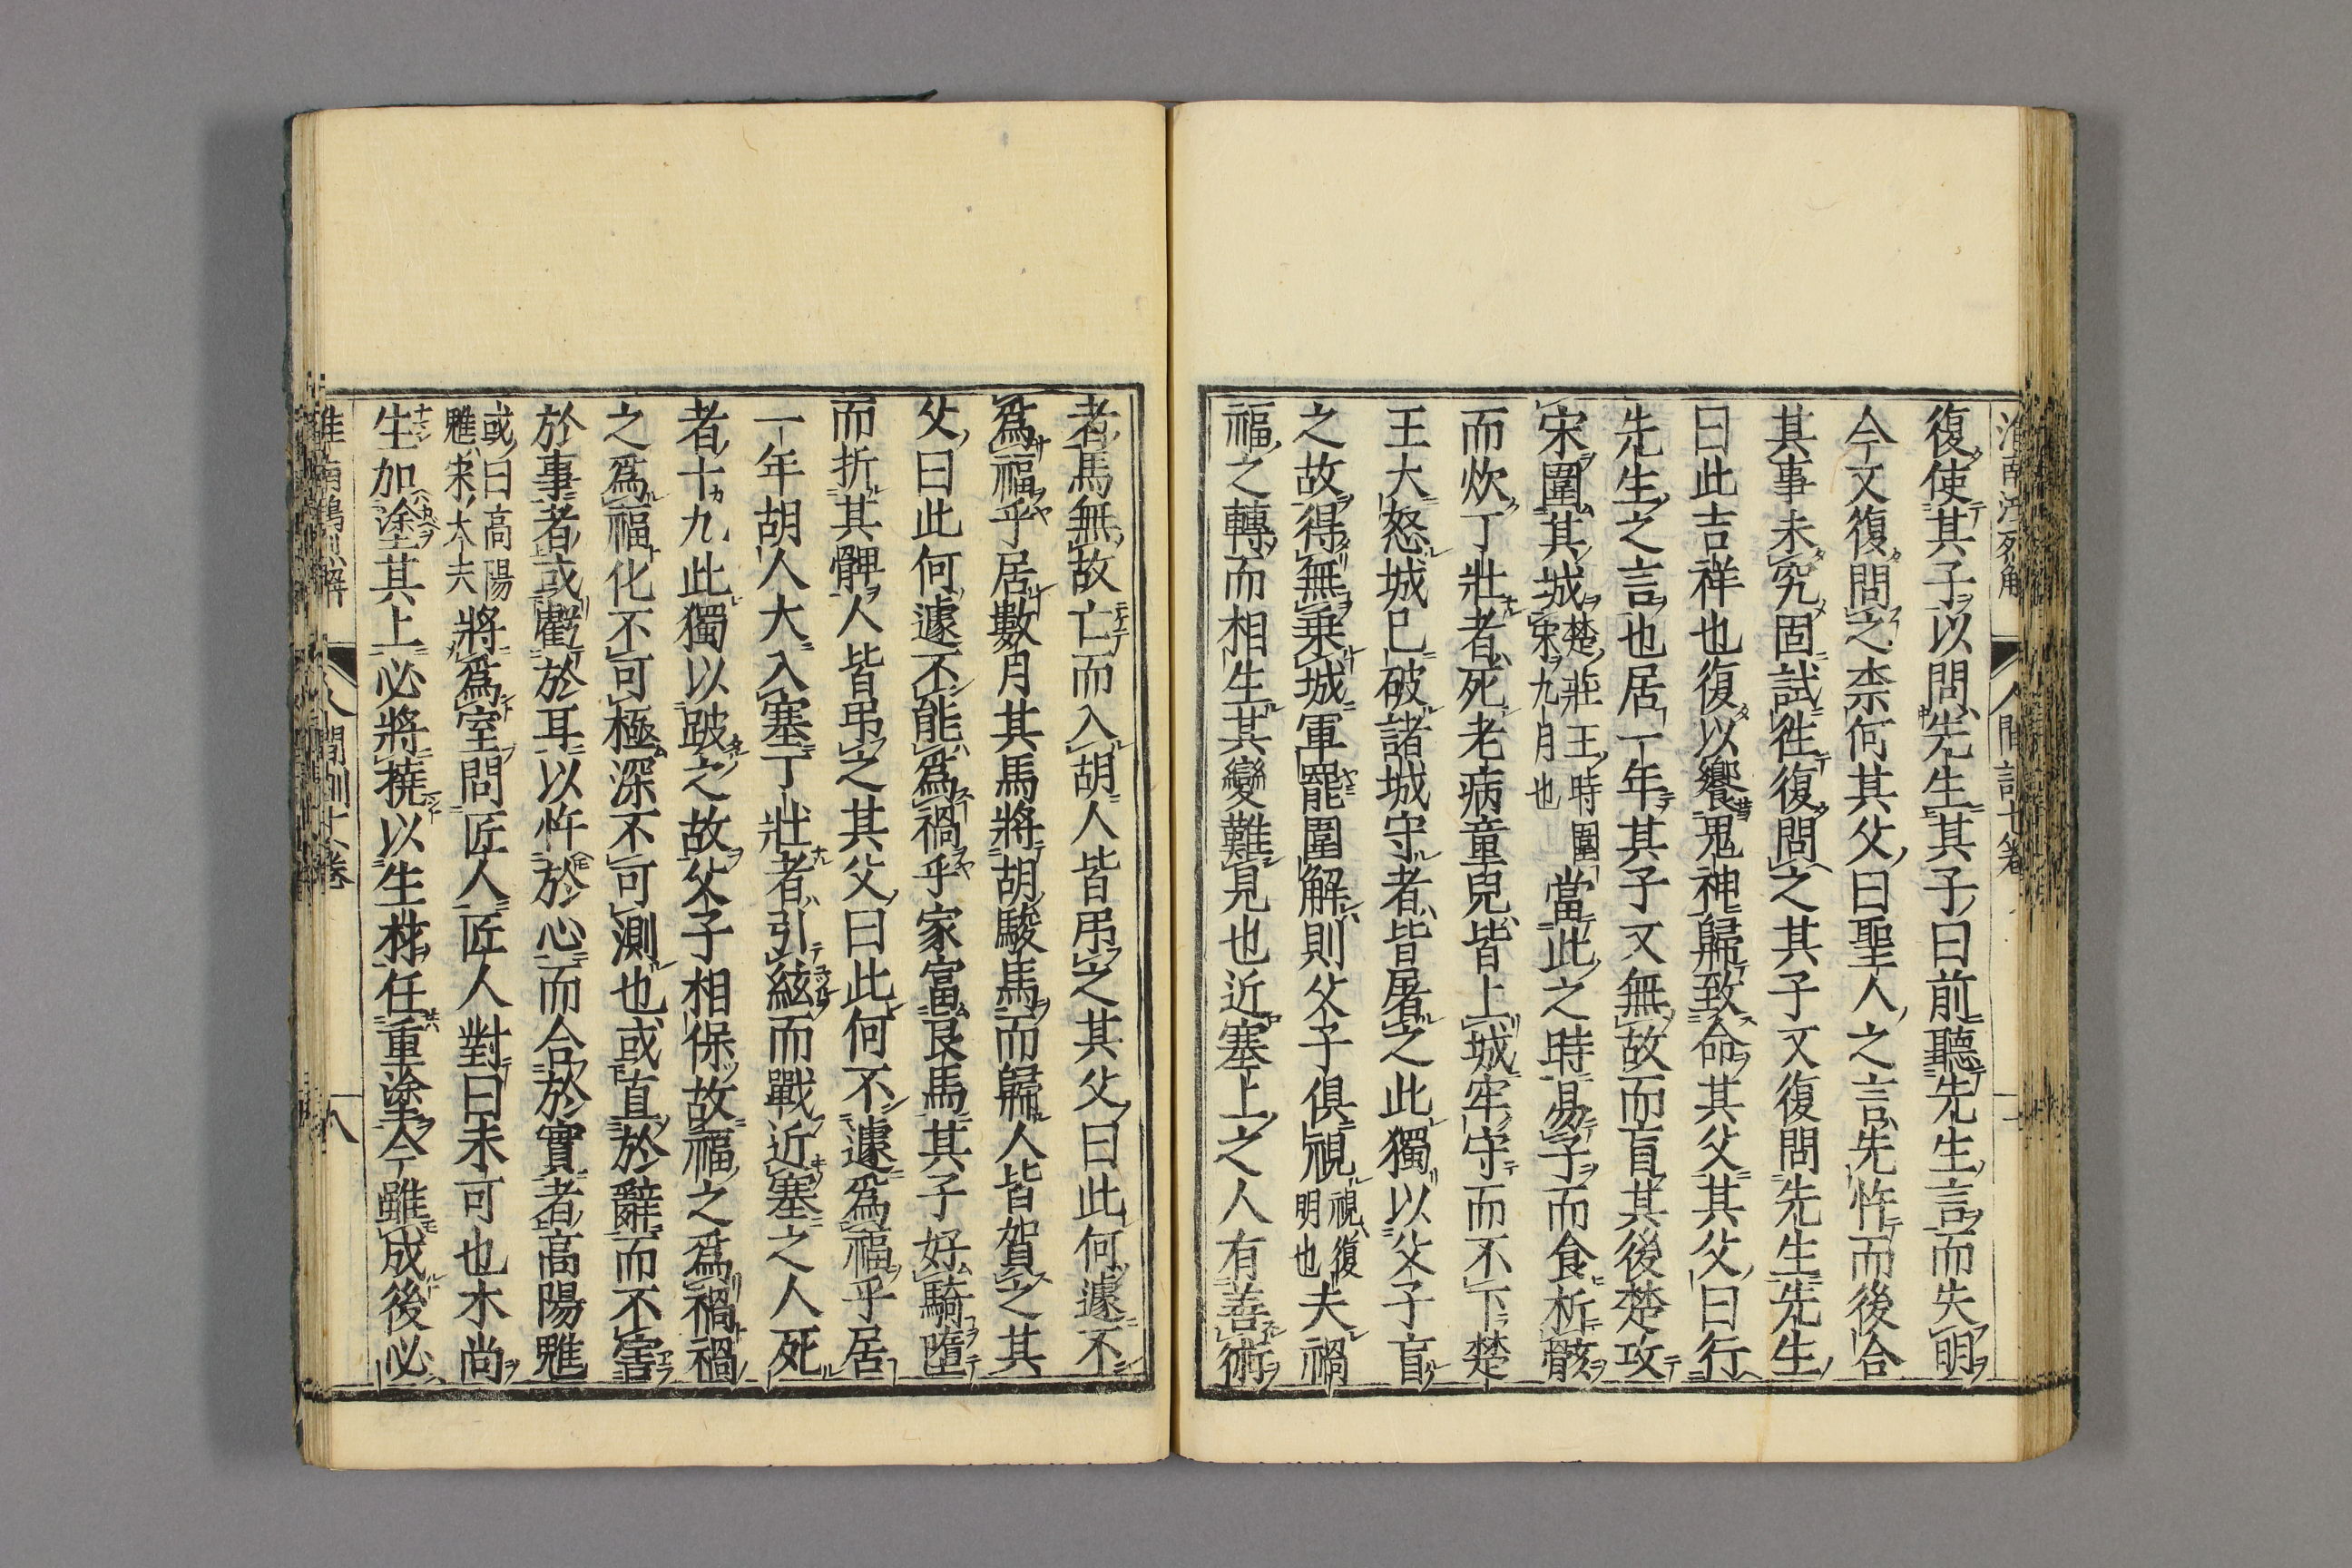 復使其子以問先生其子曰前聽先生言而失明
今又復問之柰何其父曰聖人之言先忤而後合
其事未究固試徃復問之其子又復問先生先生
曰此吉祥也復以饗鬼神歸致命其父其父曰行
先生之言也居一年其子又無故而盲其後楚攻
宋圍其城楚莊王時圍宋九月也當此之時易子而食析骸
而炊丁壯者死老病童兒皆上城牢守而不下楚
王大怒城已破諸城守者皆屠之此獨以父子盲
之故得無乗城軍罷圍解則父子俱視視復明也夫禍
福之轉而相生其變難見也近塞上之人有善術
者馬無故亡而入胡人皆弔之其父曰此何遽不
爲福乎居數月其馬將胡駿馬而歸人皆賀之其
父曰此何遽不能爲禍乎家富良馬其子好騎墮
而折其髀人皆弔之其父曰此何不遽爲福乎居
一年胡人大入塞丁壯者引絃而戰近塞之人死
者十九此獨以跛之故父子相保故福之爲禍禍
之爲福化不可極深不可測也或直於辭而不害
於事者或虧於耳以忤於心而合於實者高陽魋
或曰高陽魋宋大夫將爲室問匠人匠人對曰未可也木尚
生加塗其上必將撓以生材任重塗今雖成後必
人間訓十八卷
八